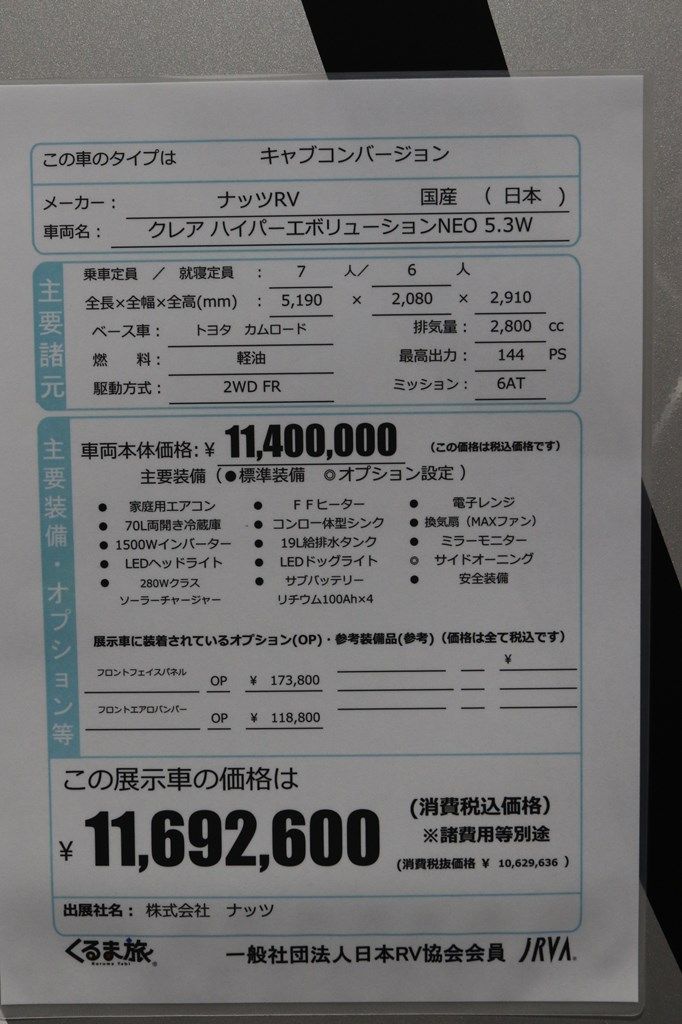 この車のタイプは キャブコンバージョン
メーカー： ナッツRV 国産 （ 日本 ）
車両名： クレア ハイパーエボリューションNEO 5.3W
主要諸元
乗車定員 ／ 就寝定員 ： 7 人／ 6 人
全長×全幅×全高(mm) ： 5,190 × 2,080 × 2,910
ベース車： トヨタ カムロード 排気量： 2,800 cc
燃 料： 軽油 最高出力： 144 PS
駆動方式： 2WD FR ミッション： 6AT
主要装備・オプション等
車両本体価格：¥ 11,400,000 （この価格は税込価格です）
主要装備（●標準装備 ◎オプション設定 ）
● 家庭用エアコン ● ＦＦヒーター ● 電子レンジ
● 70L両開き冷蔵庫 ● コンロ一体型シンク ● 換気扇（MAXファン）
● 1500Wインバーター ● 19L給排水タンク ● ミラーモニター
● LEDヘッドライト ● LEDドッグライト ◎ サイドオーニング
● 280Wクラス ● サブバッテリー ● 安全装備
ソーラーチャージャー リチウム100Ah×4
展示車に装着されているオプション(OP)・参考装備品(参考)（価格は全て税込です）
フロントフェイスパネル OP ¥ 173,800 ¥
フロントエアロバンパー OP ¥ 118,800
この展示車の価格は
¥ 11,692,600 (消費税込価格)
※諸費用等別途
(消費税抜価格 ¥ 10,629,636 )
出展社名： 株式会社 ナッツ
くるま旅 Kuruma Tabi 一般社団法人日本RV協会会員 JRVA